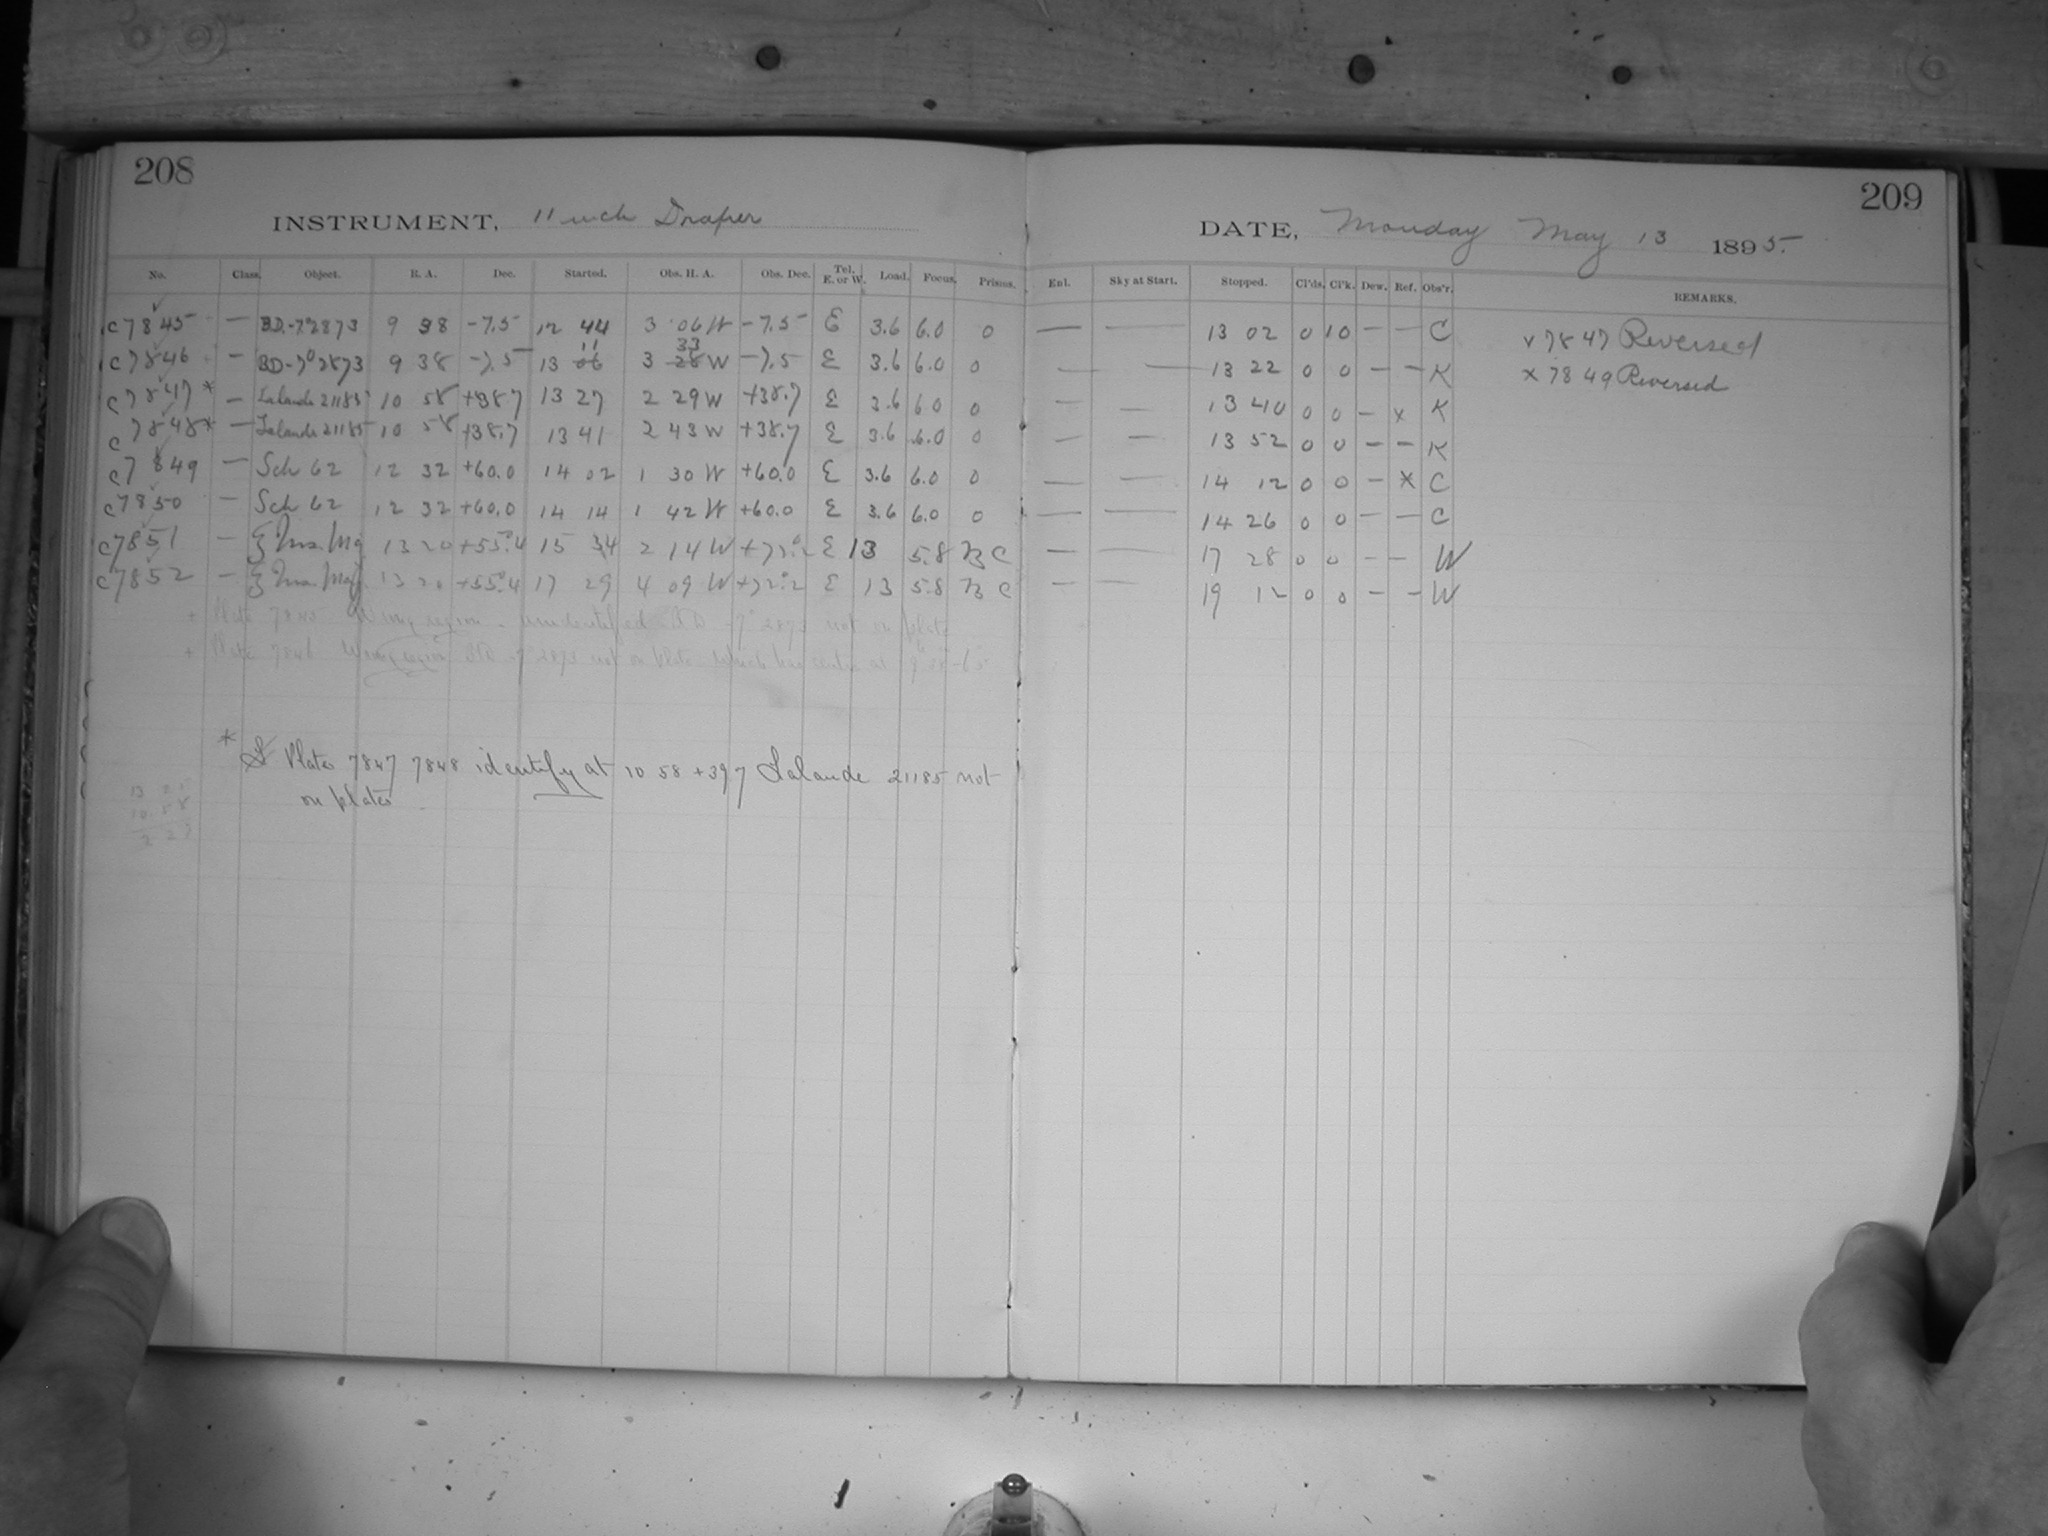 208
209
INSTRUMENT, 11 inch Draper
DATE, Monday May 13 1895.
No. Class. Object. R. A. Dec. Started. Obs. H. A. Obs. Dec. Tel. E. or W. Load. Focus. Prisms. Enl. Sky at Start. Stopped. Cl'ds. Cl'k. Dew. Ref. Obs'r. REMARKS.
C7845 — BD.-7°2873 9 38 -7.5 12 44 3 06 W -7.5 E 3.6 6.0 0 — — 13 02 0 10 — — C x 7847 Reversed
C7846 — BD-7°2873 9 38 -7.5 13 06 11 3 28 33 W -7.5 E 3.6 6.0 0 — — 13 22 0 0 — — K x 7849 Reversed
C7847* — Lalande 21185 10 58 +38.7 13 27 2 29 W +38.7 E 3.6 6.0 0 — — 13 40 0 0 — x K
C7848* — Lalande 21185 10 58 +38.7 13 41 2 43 W +38.7 E 3.6 6.0 0 — — 13 52 0 0 — — K
C7849 — Sch 62 12 32 +60.0 14 02 1 30 W +60.0 E 3.6 6.0 0 — — 14 12 0 0 — * C
C7850 — Sch 62 12 32 +60.0 14 14 1 42 W +60.0 E 3.6 6.0 0 — — 14 26 0 0 — — C
C7851 — ζ Urs. Maj 13 20 +55°.4 15 34 2 14 W E 13 5.8 B C — — 17 28 0 0 — — W
C7852 — ζ Urs. Maj. 13 20 +55°.4 17 29 4 09 W +72°.2 E 13 5.8 B C — — 19 12 0 0 — — W
+ Plate 7845 Wrong region. unidentified BD -7° 2873 not on plate
+ Plate 7846 Wrong region BD -7° 2873 not on plate which has centre at
* Plates 7847 7848 identify at 10 58 +39.7 Lalande 21185 not
on plates.
10 58